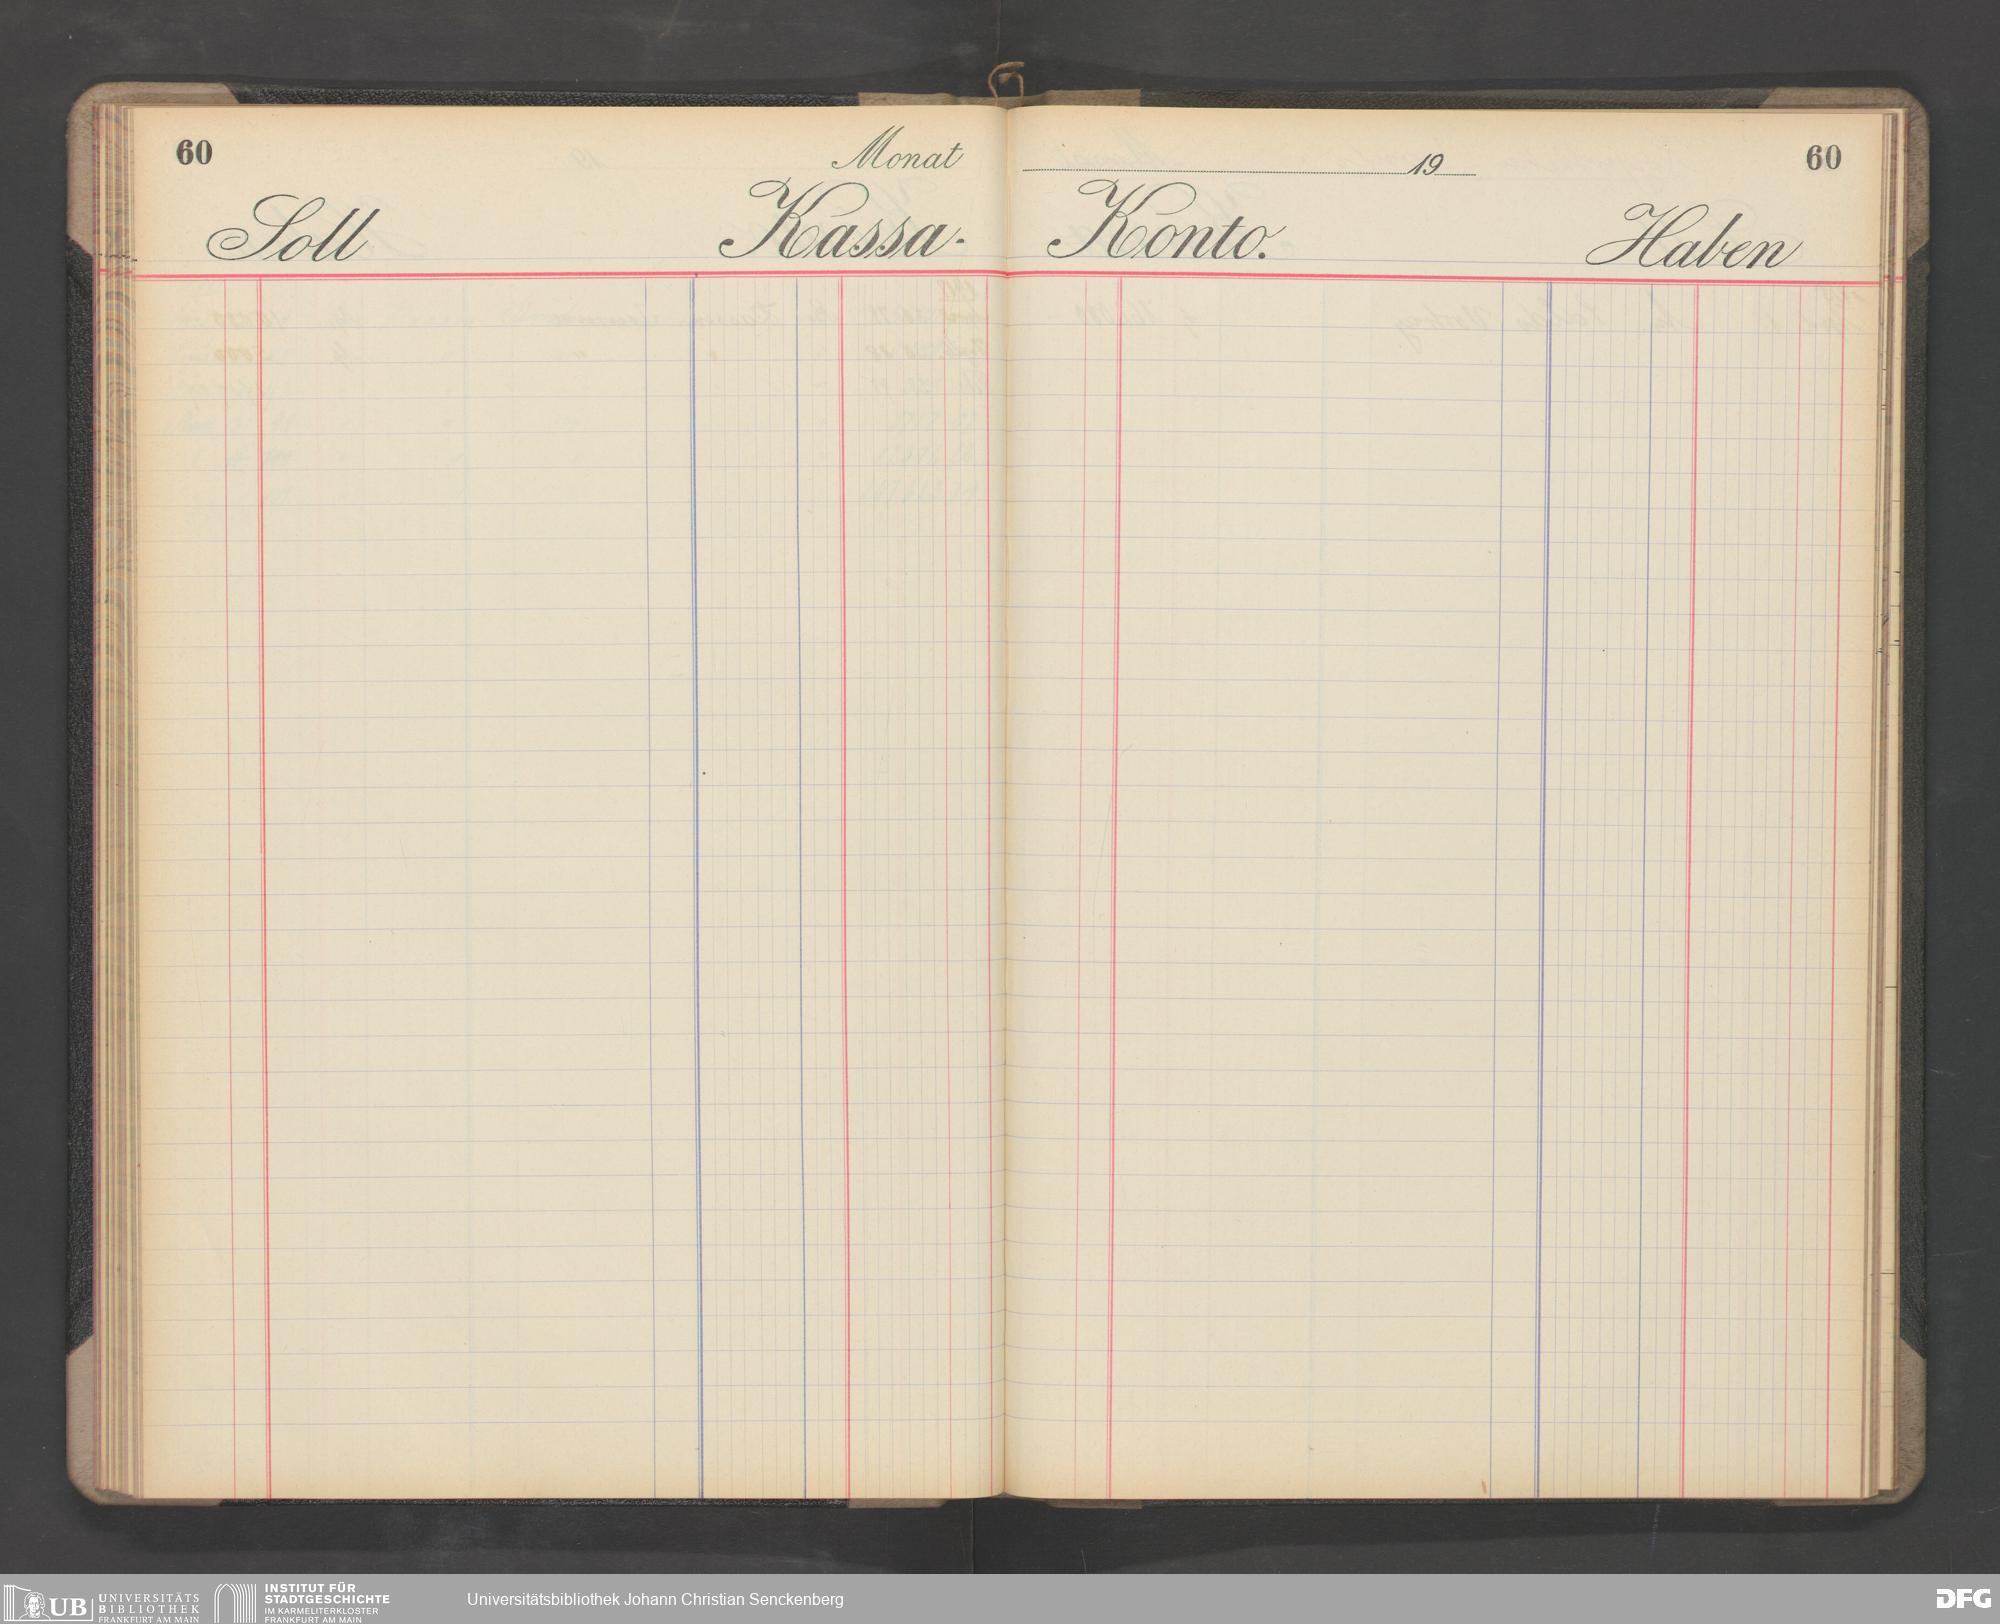 60
Monat 19
60
Soll Kassa- Konto. Haben
UB UNIVERSITÄTS
BIBLIOTHEK
FRANKFURT AM MAIN
INSTITUT FÜR
STADTGESCHICHTE
IM KARMELITERKLOSTER
FRANKFURT AM MAIN
Universitätsbibliothek Johann Christian Senckenberg
DFG